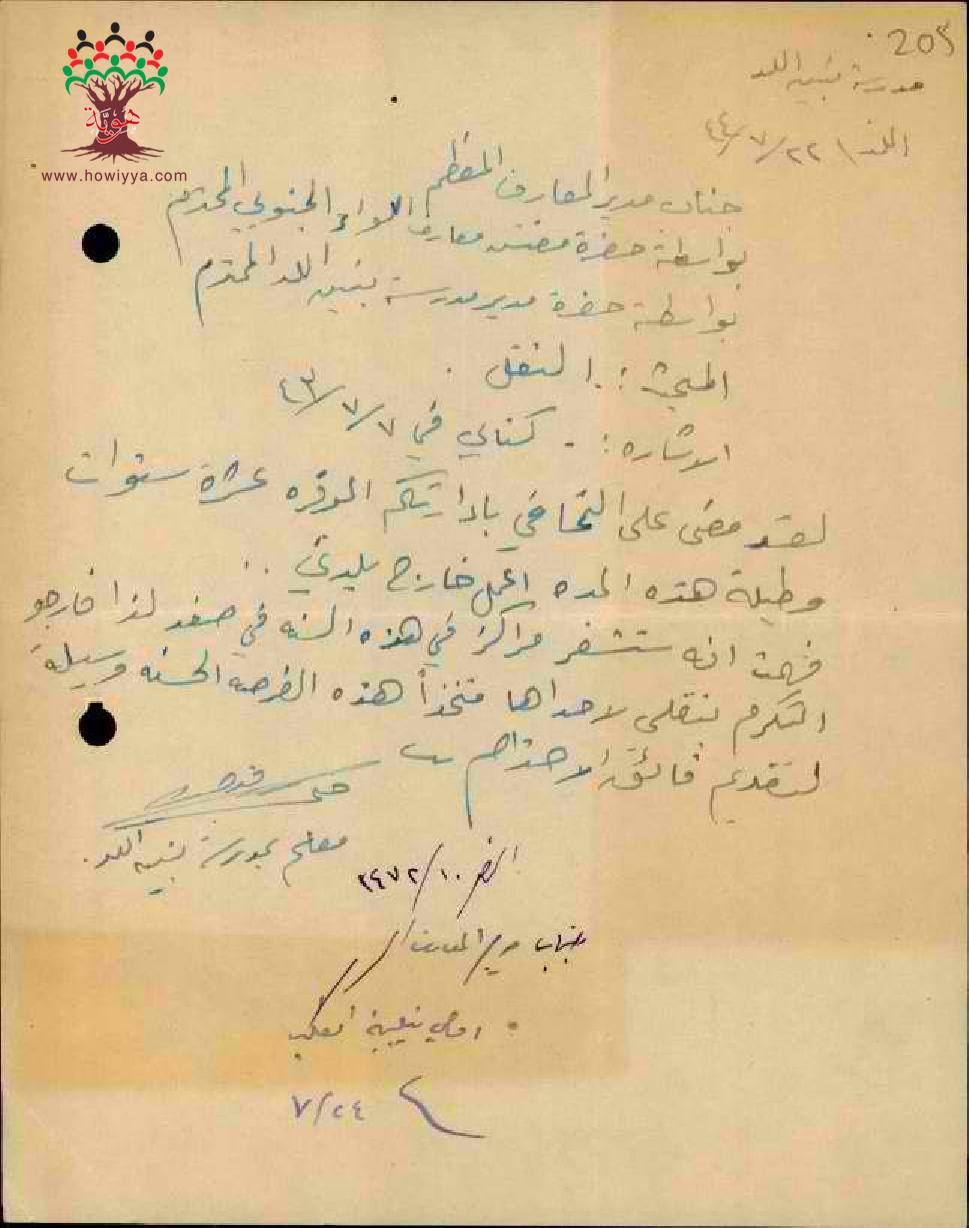 205
هوية
www.howiyya.com
مدرسة بنين اللد
اللد ٢٢/٧/٤٤
جناب مدير المعارف المعظم
بواسطة حضرة مفتش معارف اللواء الجنوبي المحترم
بواسطة حضرة مدير مدرسة بنين اللد المحترم
المبحث :. النقل .
الاشاره :. كتابي في ٧/٧/٤٣
لقد مضى على التحاقي بادارتكم الموقره عشرة سنوات
وطيلة هذه المده اعمل خارج بلدي ..
فهمت انه ستشغر مراكز في هذه السنه في صفد لذا فارجو
التكرم بنقلي لاحداها متخذاً هذه الفرصه الحسنه وسيلة
لتقديم فائق الاحترام
معلم بمدرسة بنين اللد.
النمره ١٠/٢٤٧٢
جناب مدير المعارف
اوصي بتلبية الطلب
٢٤/٧